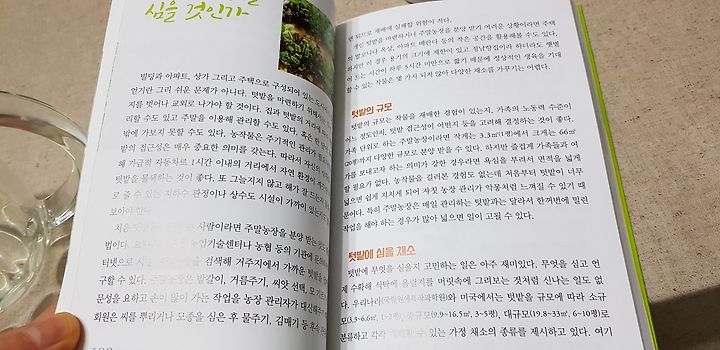 심을 것인가
빌딩과 아파트, 상가 그리고 주택으로 구성되어 있는
얻기란 그리 쉬운 문제가 아니다. 텃밭을 마련하기 위해서는
지를 벗어나 교외로 나가야 할 것이다. 집과 텃밭의 거리에
리할 수도 있고 주말을 이용해 관리할 수도 있다. 혹은 한 달에
밖에 가보지 못할 수도 있다. 농작물은 주기적인 관리가
밭의 접근성은 매우 중요한 의미를 갖는다. 따라서 자신의
해 가급적 자동차로 1시간 이내의 거리에서 자연 환경이
텃밭을 물색하는 것이 좋다. 또 그늘지지 않고 해가 잘
로 줄 수 있는 지하수 관정이나 상수도 시설이 가까이 있는지도
보아야 한다.
처음 사람이라면 주말농장을 분양 받는 것도
법이다. 업기술센터나 농협 등의 기관에
터넷으로 검색해 거주지에서 가까운 텃밭을
구할 수 있다. 주말농장은 밭갈이, 거름주기, 씨앗 선택,
문성을 요하고 손이 많이 가는 작업을 농장 관리자가 대신해주
회원은 씨를 뿌리거나 모종을 심은 후 물주기, 김매기 등 후속
면 되므로 재배에 실패할 위험이 적다.
개인 텃밭을 마련하거나 주말농장을 분양 받기 어려운 상황이라면 주택
의 발코니나 옥상, 아파트 베란다 등의 작은 공간을 활용해볼 수도 있다.
하지만 이 경우 용기의 크기에 제한이 있고 정남향집이라 하더라도 햇볕
이 드는 시간이 하루 5시간 미만으로 짧기 때문에 정상적인 생육을 기대
할 수 있는 작물은 몇 가지 되지 않아 다양한 채소를 가꾸기는 어렵다.
텃밭의 규모
텃밭의 규모는 작물을 재배한 경험이 있는지, 가족의 노동력 수준이
어느 정도인지, 텃밭 접근성이 어떤지 등을 고려해 결정하는 것이 좋다.
가족 단위로 하는 주말농장이라면 작게는 3.3㎡(1평)에서 크게는 66㎡
(20평)까지 다양한 규모로 분양 받을 수 있다. 하지만 즐겁게 가족들과 여
가를 보내고자 하는 의미가 강한 경우라면 욕심을 부려서 면적을 넓게
할 필요가 없다. 농작물을 길러본 경험도 없는데 처음부터 텃밭이 너무
넓으면 쉽게 지치게 되어 자칫 농장 관리가 악몽처럼 느껴질 수 있기 때
문이다. 특히 주말농장은 매일 관리하는 텃밭과는 달라서 한꺼번에 밀린
작업을 해야 하는 경우가 많아 넓으면 일이 고될 수 있다.
텃밭에 심을 채소
텃밭에 무엇을 심을지 고민하는 일은 아주 재미있다. 무엇을 심고 언
제 수확해 식탁에 올릴지를 머릿속에 그려보는 것처럼 신나는 일도 없
다. 우리나라(국립원예특작과학원)와 미국에서는 텃밭을 규모에 따라 소규
모(3.3~6.6㎡, 1~2평), 중규모(9.9~16.5㎡, 3~5평), 대규모(19.8~33㎡, 6~10평)로
분류하고 각각 재배할 수 있는 가정 채소의 종류를 제시하고 있다. 여기